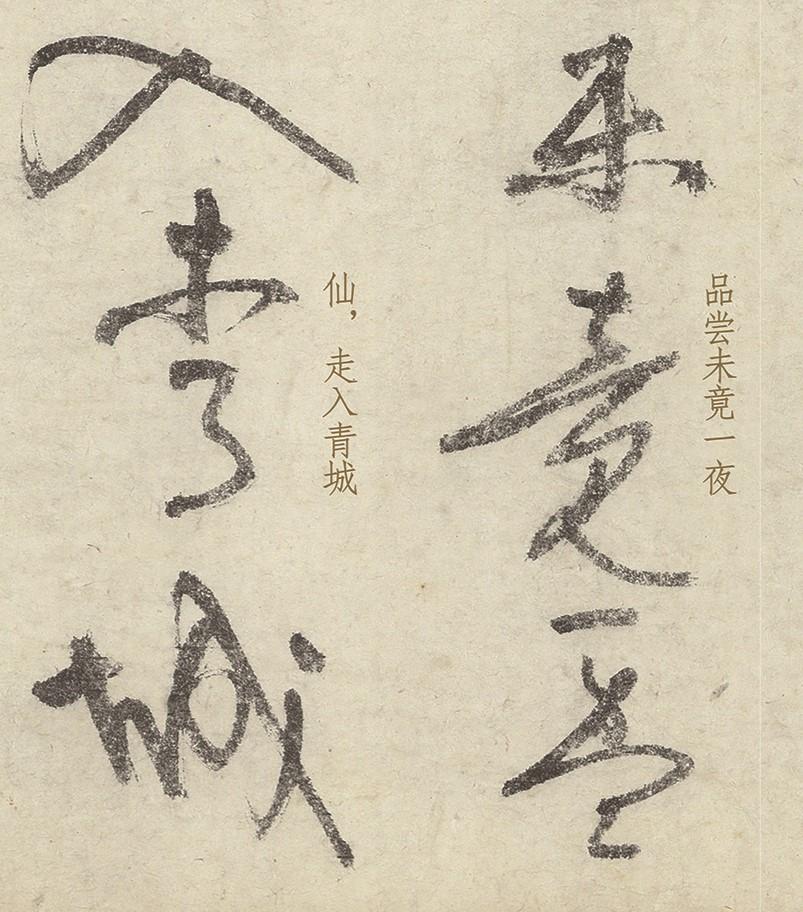 品尝未竟一夜
未竟一
仙，走入青城
入青城